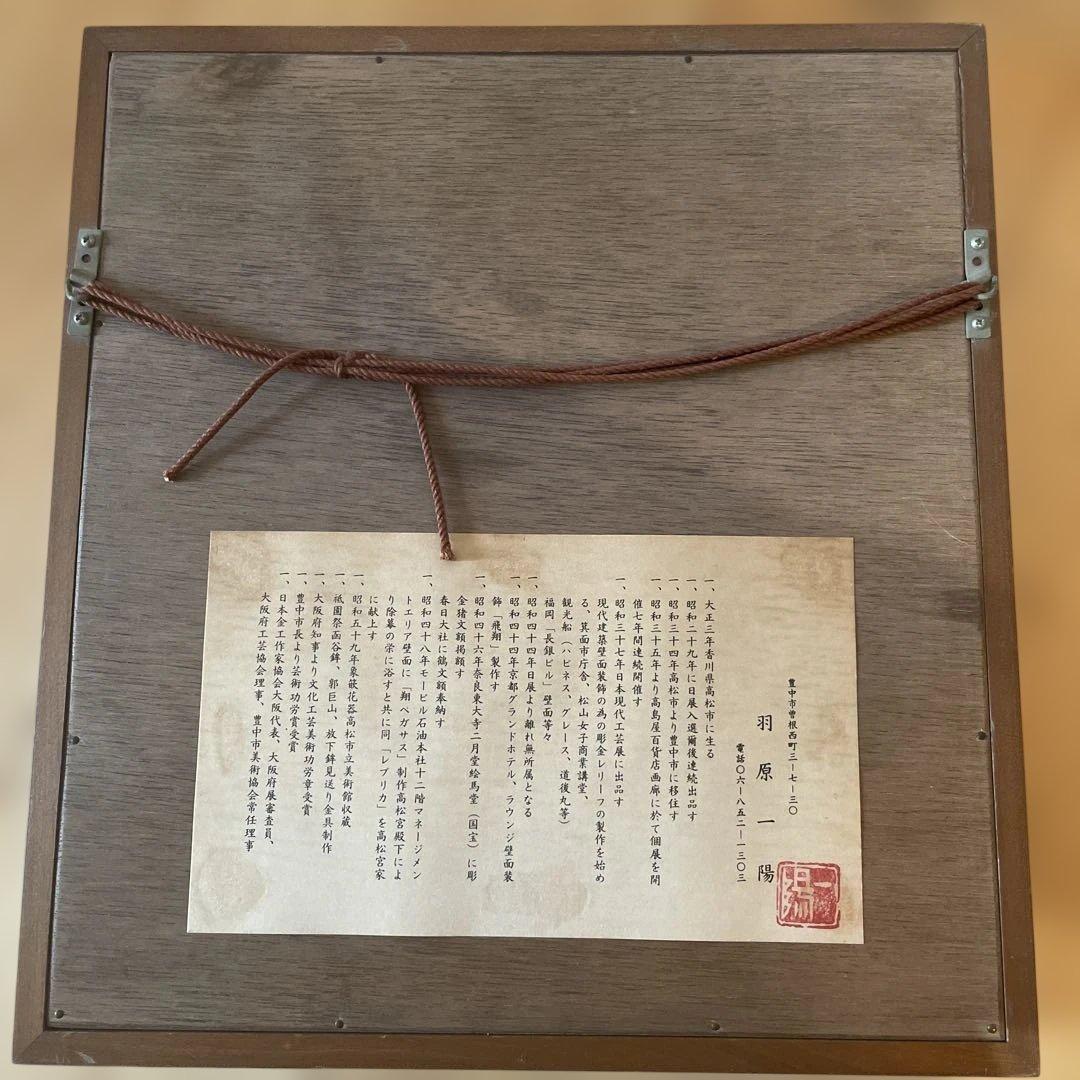 豊中市曽根西町三ー七ー三〇
羽原一陽
電話〇六ー八五二ー一三〇三
一、大正三年香川県高松市に生る
一、昭和二十九年に日展入選爾後連続出品す
一、昭和三十四年高松市より豊中市に移住す
一、昭和三十五年より高島屋百貨店画廊に於て個展を開
催七年間連続開催す
一、昭和三十七年日本現代工芸展に出品す
現代建築壁面装飾の為の彫金レリーフの製作を始め
る、箕面市庁舎、松山女子商業講堂、
観光船（ハピネス、グレース、道後丸等）
福岡「長銀ビル」壁面等々
一、昭和四十四年日展より離れ無所属となる
一、昭和四十四年京都グランドホテル、ラウンジ壁面装
飾「飛翔」製作す
一、昭和四十六年奈良東大寺二月堂絵馬堂（国宝）に彫
金猪文額掲額す
春日大社に鶴文額奉納す
一、昭和四十八年モービル石油本社十二階マネージメン
トエリア壁面に「翔ペガサス」制作高松宮殿下によ
り除幕の栄に浴すと共に同「レプリカ」を高松宮家
に献上す
一、昭和五十九年象嵌花器高松市立美術館収蔵
一、祇園祭函谷鉾、郭巨山、放下鉾見送り金具制作
一、大阪府知事より文化工芸美術功労章受賞
一、豊中市長より芸術功労賞受賞
一、日本金工作家協会大阪代表、大阪府展審査員、
大阪府工芸協会理事、豊中市美術協会常任理事
一陽